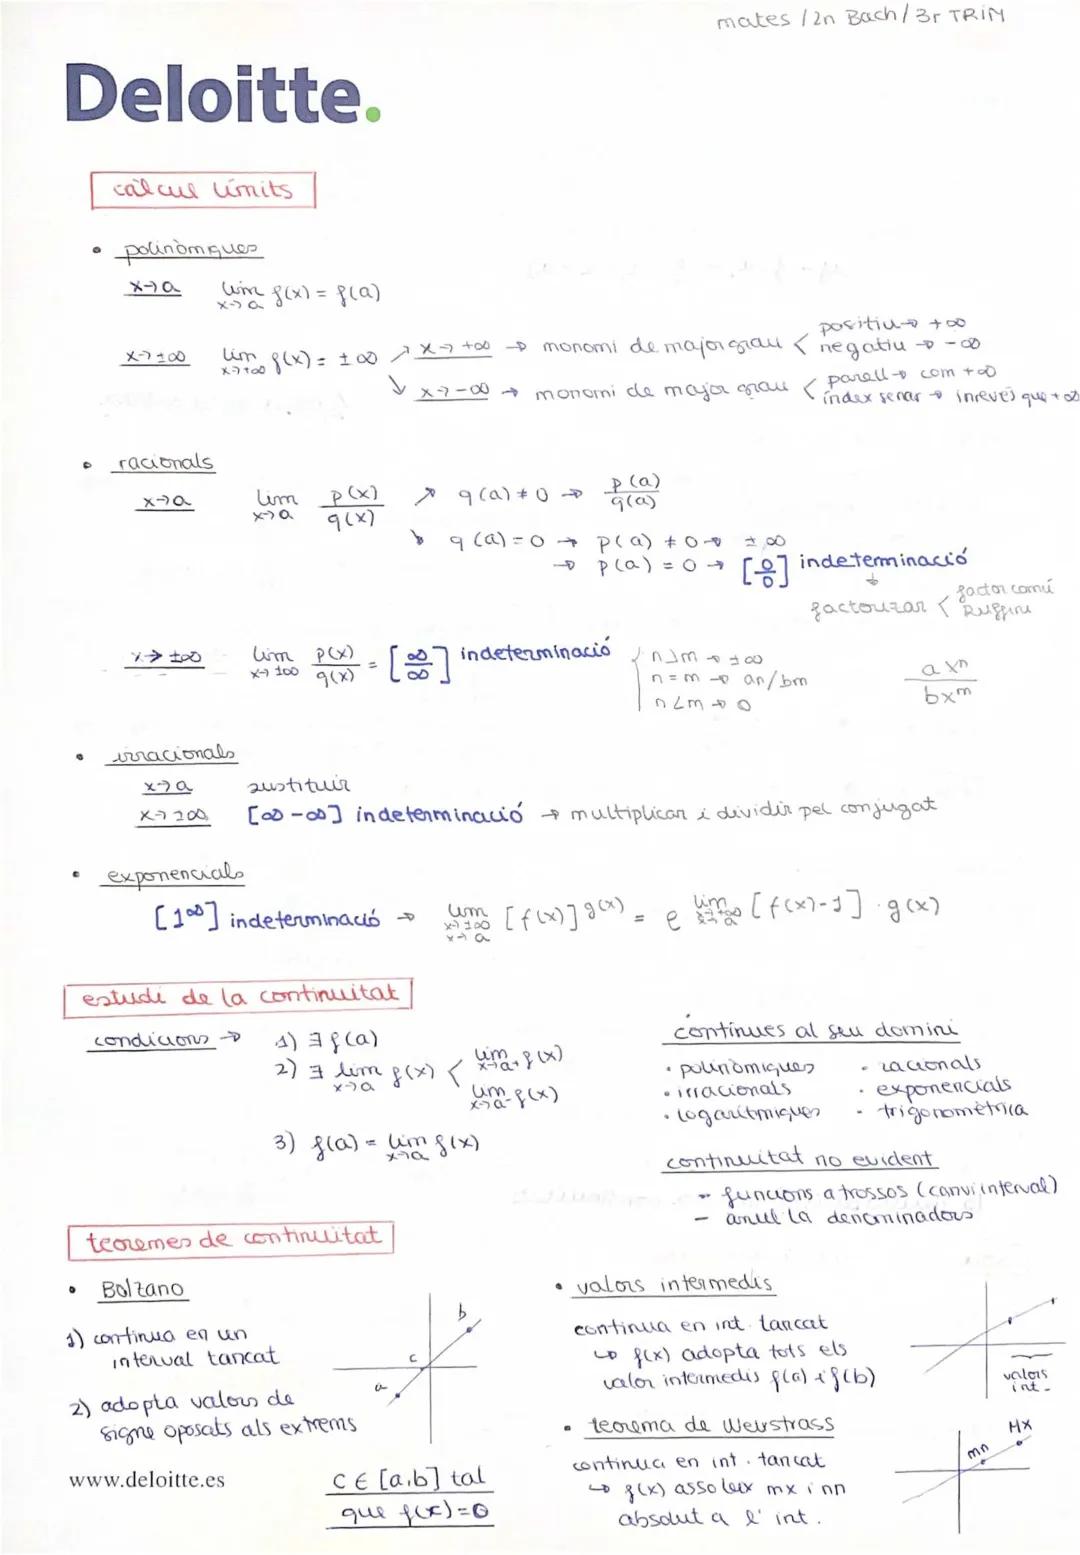 mates / 2n Bach / 3r TRIM
Deloitte.
càlcul límits
• polinòmiques
x→a lim x→a f(x) = f(a)
x→±∞ lim x→±∞ f(x) = ±∞ ↗ x→+∞ → monomi de major grau < positiu → +∞
negatiu → -∞
↘ x→-∞ → monomi de major grau < parell → com +∞
índex senar → inrevés que +∞
• racionals
x→a lim x→a p(x)/q(x) ↗ q(a) ≠ 0 → p(a)/q(a)
↘ q(a) = 0 → p(a) ≠ 0 → ±∞
→ p(a) = 0 → [0/0] indeterminació
↓
factoritzar < factor comú
Ruffini
x→±∞ lim x→±∞ p(x)/q(x) = [∞/∞] indeterminació { n>m → ±∞
n=m → an/bm
n<m → 0
axⁿ/bxᵐ
• irracionals
x→a sustituir
x→±∞ [∞-∞] indeterminació → multiplicar i dividir pel conjugat
• exponencials
[1^∞] indeterminació → lim x→±∞ x→a [f(x)]^g(x) = e^lim x→±∞ x→a [f(x)-1]·g(x)
estudi de la continuitat
condicions → 1) ∃ f(a)
2) ∃ lim x→a f(x) < lim x→a⁺ f(x)
lim x→a⁻ f(x)
3) f(a) = lim x→a f(x)
contínues al seu domini
· polinòmiques · racionals
· irracionals · exponencials
· logarítmiques · trigonomètrica
continuitat no evident
- funcions a trossos (canvi interval)
- anul·la denominadors
teoremes de continuïtat
• Bolzano
1) contínua en un
interval tancat
2) adopta valors de
signe oposats als extrems
a c b
c ∈ [a,b] tal
que f(x)=0
• valors intermedis
contínua en int. tancat
↳ f(x) adopta tots els
valor intermedis f(a) i f(b)
valors
int.
• teorema de Weirstrass
contínua en int. tancat
↳ f(x) assoleix mx i mn
absolut a l'int.
mn Mx
www.deloitte.es